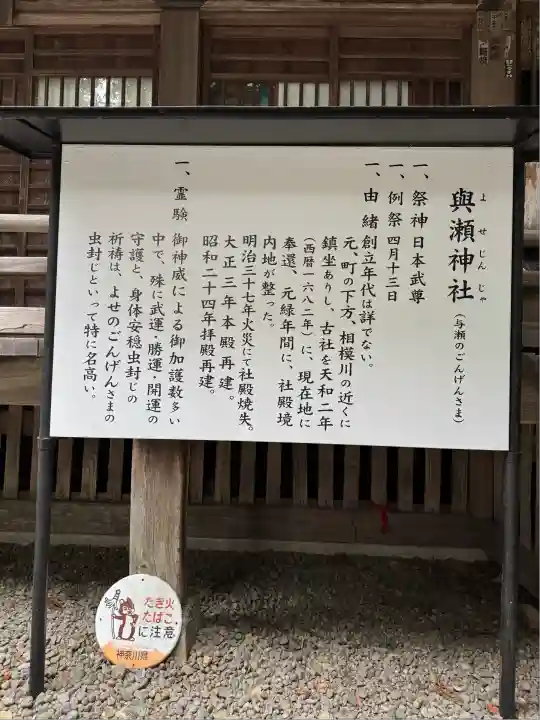 よせじんじゃ
與瀬神社(与瀬のごんげんさま)
一、祭神 日本武尊
一、例祭 四月十三日
一、由緒 創立年代は詳でない。
元、町の下方、相模川の近くに
鎮坐ありし、古社を天和二年
(西暦一六八二年)に、現在地に
奉還、元緑年間に、社殿境
内地が整った。
明治三十七年火災にて社殿焼失。
大正三年本殿再建。
昭和二十四年拝殿再建。
一、霊験 御神威による御加護数多い
中で、殊に武運・勝運・開運の
守護と、身体安穏虫封じの
祈祷は、よせのごんげんさまの
虫封じといって特に名高い。
たき火
たばこ
に注意
神奈川県